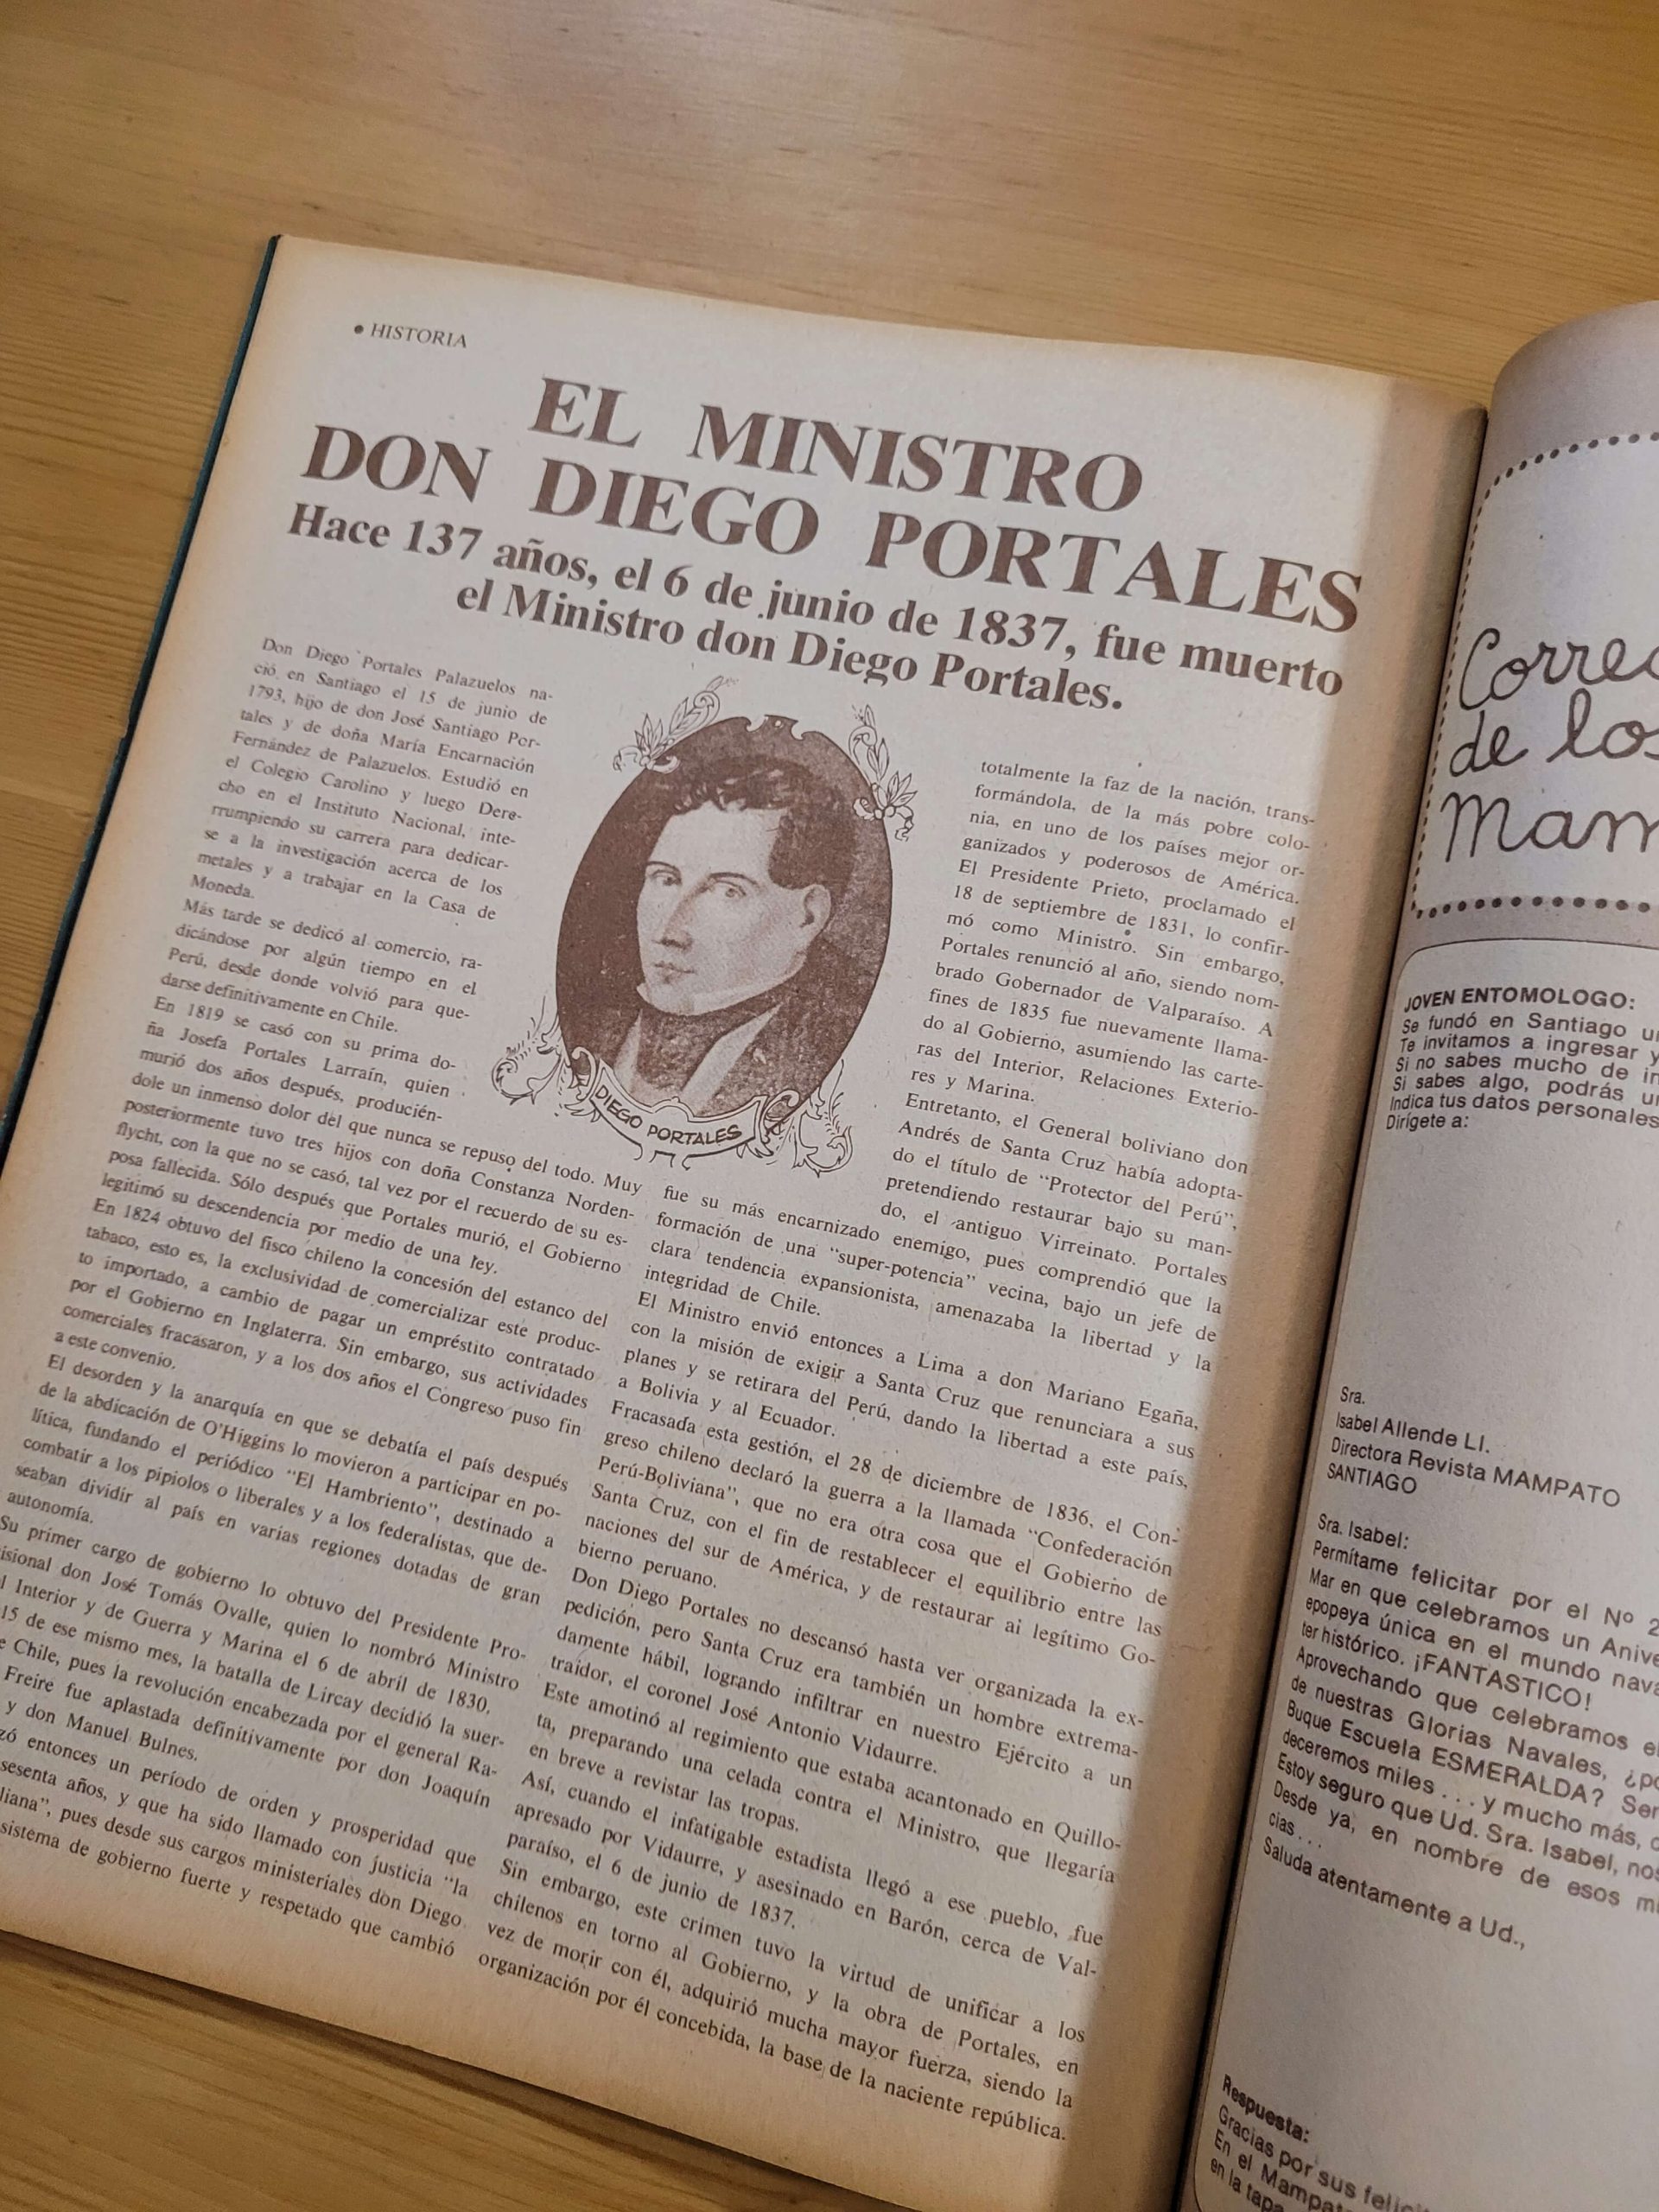 • HISTORIA
EL MINISTRO
DON DIEGO PORTALES
Hace 137 años, el 6 de junio de 1837, fue muerto
el Ministro don Diego Portales.
Don Diego Portales Palazuelos na-
ció en Santiago el 15 de junio de
1793, hijo de don José Santiago Por-
tales y de doña María Encarnación
Fernández de Palazuelos. Estudió en
el Colegio Carolino y luego Dere-
cho en el Instituto Nacional, inte-
rrumpiendo su carrera para dedicar-
se a la investigación acerca de los
metales y a trabajar en la Casa de
Moneda.
Más tarde se dedicó al comercio, ra-
dicándose por algún tiempo en el
Perú, desde donde volvió para que-
darse definitivamente en Chile.
En 1819 se casó con su prima do-
ña Josefa Portales Larraín, quien
murió dos años después, producién-
dole un inmenso dolor del que nunca se repuso del todo. Muy
posteriormente tuvo tres hijos con doña Constanza Norden-
flycht, con la que no se casó, tal vez por el recuerdo de su es-
posa fallecida. Sólo después que Portales murió, el Gobierno
legitimó su descendencia por medio de una ley.
En 1824 obtuvo del fisco chileno la concesión del estanco del
tabaco, esto es, la exclusividad de comercializar este produc-
to importado, a cambio de pagar un empréstito contratado
por el Gobierno en Inglaterra. Sin embargo, sus actividades
comerciales fracasaron, y a los dos años el Congreso puso fin
a este convenio.
El desorden y la anarquía en que se debatía el país después
de la abdicación de O'Higgins lo movieron a participar en po-
lítica, fundando el periódico "El Hambriento", destinado a
combatir a los pipiolos o liberales y a los federalistas, que de-
seaban dividir al país en varias regiones dotadas de gran
autonomía.
Su primer cargo de gobierno lo obtuvo del Presidente Pro-
isional don José Tomás Ovalle, quien lo nombró Ministro
l Interior y de Guerra y Marina el 6 de abril de 1830.
15 de ese mismo mes, la batalla de Lircay decidió la suer-
e Chile, pues la revolución encabezada por el general Ra-
Freire fue aplastada definitivamente por don Joaquín
y don Manuel Bulnes.
zó entonces un período de orden y prosperidad que
sesenta años, y que ha sido llamado con justicia "la
liana", pues desde sus cargos ministeriales don Diego
sistema de gobierno fuerte y respetado que cambió
DIEGO PORTALES
totalmente la faz de la nación, trans-
formándola, de la más pobre colo-
nia, en uno de los países mejor or-
ganizados y poderosos de América.
El Presidente Prieto, proclamado el
18 de septiembre de 1831, lo confir-
mó como Ministro. Sin embargo,
Portales renunció al año, siendo nom-
brado Gobernador de Valparaíso. A
fines de 1835 fue nuevamente llama-
do al Gobierno, asumiendo las carte-
ras del Interior, Relaciones Exterio-
res y Marina.
Entretanto, el General boliviano don
Andrés de Santa Cruz había adopta-
do el título de "Protector del Perú",
pretendiendo restaurar bajo su man-
do, el antiguo Virreinato. Portales
fue su más encarnizado enemigo, pues comprendió que la
formación de una "super-potencia" vecina, bajo un jefe de
clara tendencia expansionista, amenazaba la libertad y la
integridad de Chile.
El Ministro envió entonces a Lima a don Mariano Egaña,
con la misión de exigir a Santa Cruz que renunciara a sus
planes y se retirara del Perú, dando la libertad a este país,
a Bolivia y al Ecuador.
Fracasada esta gestión, el 28 de diciembre de 1836, el Con-
greso chileno declaró la guerra a la llamada "Confederación
Perú-Boliviana", que no era otra cosa que el Gobierno de
Santa Cruz, con el fin de restablecer el equilibrio entre las
naciones del sur de América, y de restaurar al legítimo Go-
bierno peruano.
Don Diego Portales no descansó hasta ver organizada la ex-
pedición, pero Santa Cruz era también un hombre extrema-
damente hábil, logrando infiltrar en nuestro Ejército a un
traidor, el coronel José Antonio Vidaurre.
Este amotinó al regimiento que estaba acantonado en Quillo-
ta, preparando una celada contra el Ministro, que llegaría
en breve a revistar las tropas.
Así, cuando el infatigable estadista llegó a ese pueblo, fue
apresado por Vidaurre, y asesinado en Barón, cerca de Val-
paraíso, el 6 de junio de 1837.
Sin embargo, este crimen tuvo la virtud de unificar a los
chilenos en torno al Gobierno, y la obra de Portales, en
vez de morir con él, adquirió mucha mayor fuerza, siendo la
organización por él concebida, la base de la naciente república.
Correo
de los
Mam
JOVEN ENTOMOLOGO:
Se fundó en Santiago un
Te invitamos a ingresar y
Si no sabes mucho de in
Si sabes algo, podrás
Indica tus datos personales
Dirígete a:
Sra.
Isabel Allende Ll.
Directora Revista MAMPATO
SANTIAGO
Sra. Isabel:
Permítame felicitar por el Nº 2
Mar en que celebramos un Anive
epopeya única en el mundo nava
ter histórico. ¡FANTASTICO!
Aprovechando que celebramos e
de nuestras Glorias Navales, ¿po
Buque Escuela ESMERALDA? Ser
deceremos miles... y mucho más,
Estoy seguro que Ud. Sra. Isabel, nos
Desde ya, en nombre de esos mi
cias...
Saluda atentamente a Ud.,
Respuesta:
Gracias por sus felicit
En el Mampato
en la tapa